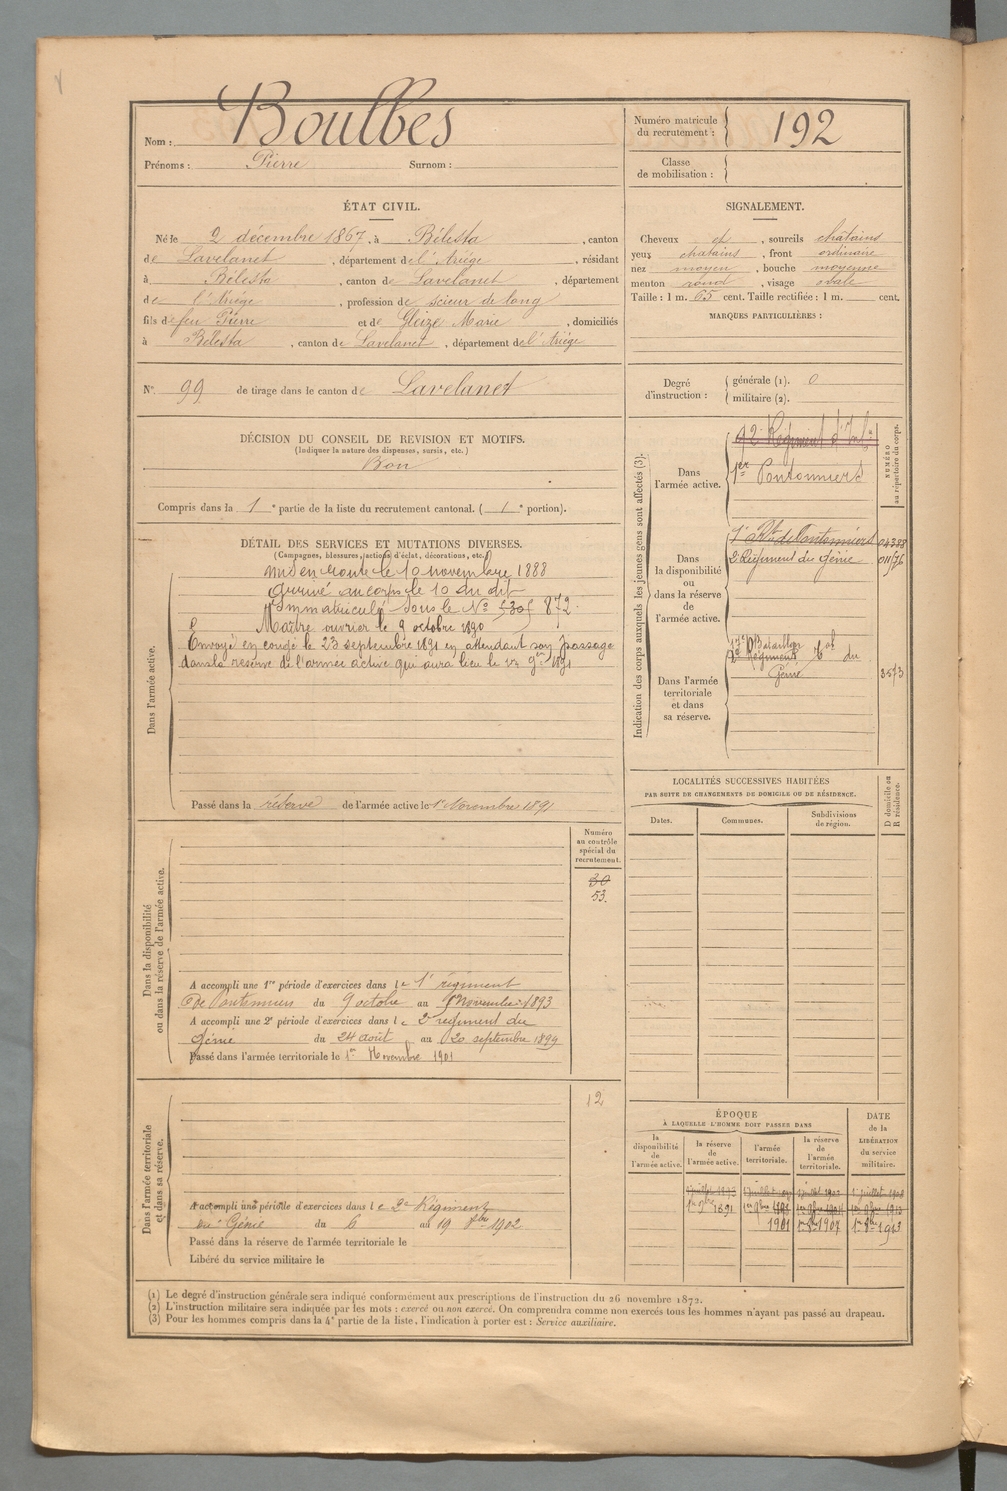 Nom : Boulbes
Prénoms : Pierre Surnom :
Numéro matricule du recrutement : 192
Classe de mobilisation :
ÉTAT CIVIL.
Né le 2 décembre 1867, à Bélesta, canton
de Lavelanet, département de l'Ariége, résidant
à Bélesta, canton de Lavelanet, département
de l'Ariége, profession de scieur de long
fils de feu Pierre et de Gleize Marie, domiciliés
à Bélesta, canton de Lavelanet, département de l'Ariége
SIGNALEMENT.
Cheveux et, sourcils chatains
yeux chatains, front ordinaire
nez moyen, bouche moyenne
menton rond, visage ovale
Taille : 1 m. 65 cent. Taille rectifiée : 1 m. cent.
MARQUES PARTICULIÈRES :
N° 99 de tirage dans le canton de Lavelanet
Degré d'instruction : générale (1). 0
militaire (2).
DÉCISION DU CONSEIL DE REVISION ET MOTIFS.
(Indiquer la nature des dispenses, sursis, etc.)
Bon
Compris dans la 1e partie de la liste du recrutement cantonal. (1e portion).
DÉTAIL DES SERVICES ET MUTATIONS DIVERSES.
(Campagnes, blessures, actions d'éclat, décorations, etc.)
Dans l'armée active.
Mis en route le 10 novembre 1888
Arrivé au corps le 10 du dit
Immatriculé sous le N° 872.
Maître ouvrier le 9 octobre 1890
Envoyé en congé le 23 septembre 1891 en attendant son passage
dans la réserve de l'armée active qui aura lieu le 1er 9bre 1891
Passé dans la réserve de l'armée active le 1er Novembre 1891
Indication des corps auxquels les jeunes gens sont affectés (3).
NUMÉRO au répertoire du corps.
Dans l'armée active.
92e Régiment d'Infie
1er Pontonniers
Dans la disponibilité ou dans la réserve de l'armée active.
1er Rt de Pontonniers 04388
2e Régiment du Génie
Dans l'armée territoriale et dans sa réserve.
Bataillon
Régiment du
Génie 3573
LOCALITÉS SUCCESSIVES HABITÉES
PAR SUITE DE CHANGEMENTS DE DOMICILE OU DE RÉSIDENCE.
D domicile ou R résidence.
Dates. Communes. Subdivisions de région.
Dans la disponibilité ou dans la réserve de l'armée active.
Numéro au contrôle spécial du recrutement.
30
53.
A accompli une 1re période d'exercices dans le 1er régiment
de Pontonniers du 9 octobre au 5 Novembre 1893
A accompli une 2e période d'exercices dans le 2e régiment du
Génie du 24 août au 20 septembre 1899
Passé dans l'armée territoriale le 1er Novembre 1901
Dans l'armée territoriale et dans sa réserve.
12
A accompli une période d'exercices dans le 2e Régiment
du Génie du 6 au 19 8bre 1902
Passé dans la réserve de l'armée territoriale le
Libéré du service militaire le
ÉPOQUE
À LAQUELLE L'HOMME DOIT PASSER DANS
la disponibilité de l'armée active.
la réserve de l'armée active.
l'armée territoriale.
la réserve de l'armée territoriale.
DATE de la LIBÉRATION du service militaire.
1er 9bre 1891
1901 1907 1913
(1) Le degré d'instruction générale sera indiqué conformément aux prescriptions de l'instruction du 26 novembre 1872.
(2) L'instruction militaire sera indiquée par les mots : exercé ou non exercé. On comprendra comme non exercés tous les hommes n'ayant pas passé au drapeau.
(3) Pour les hommes compris dans la 4e partie de la liste, l'indication à porter est : Service auxiliaire.